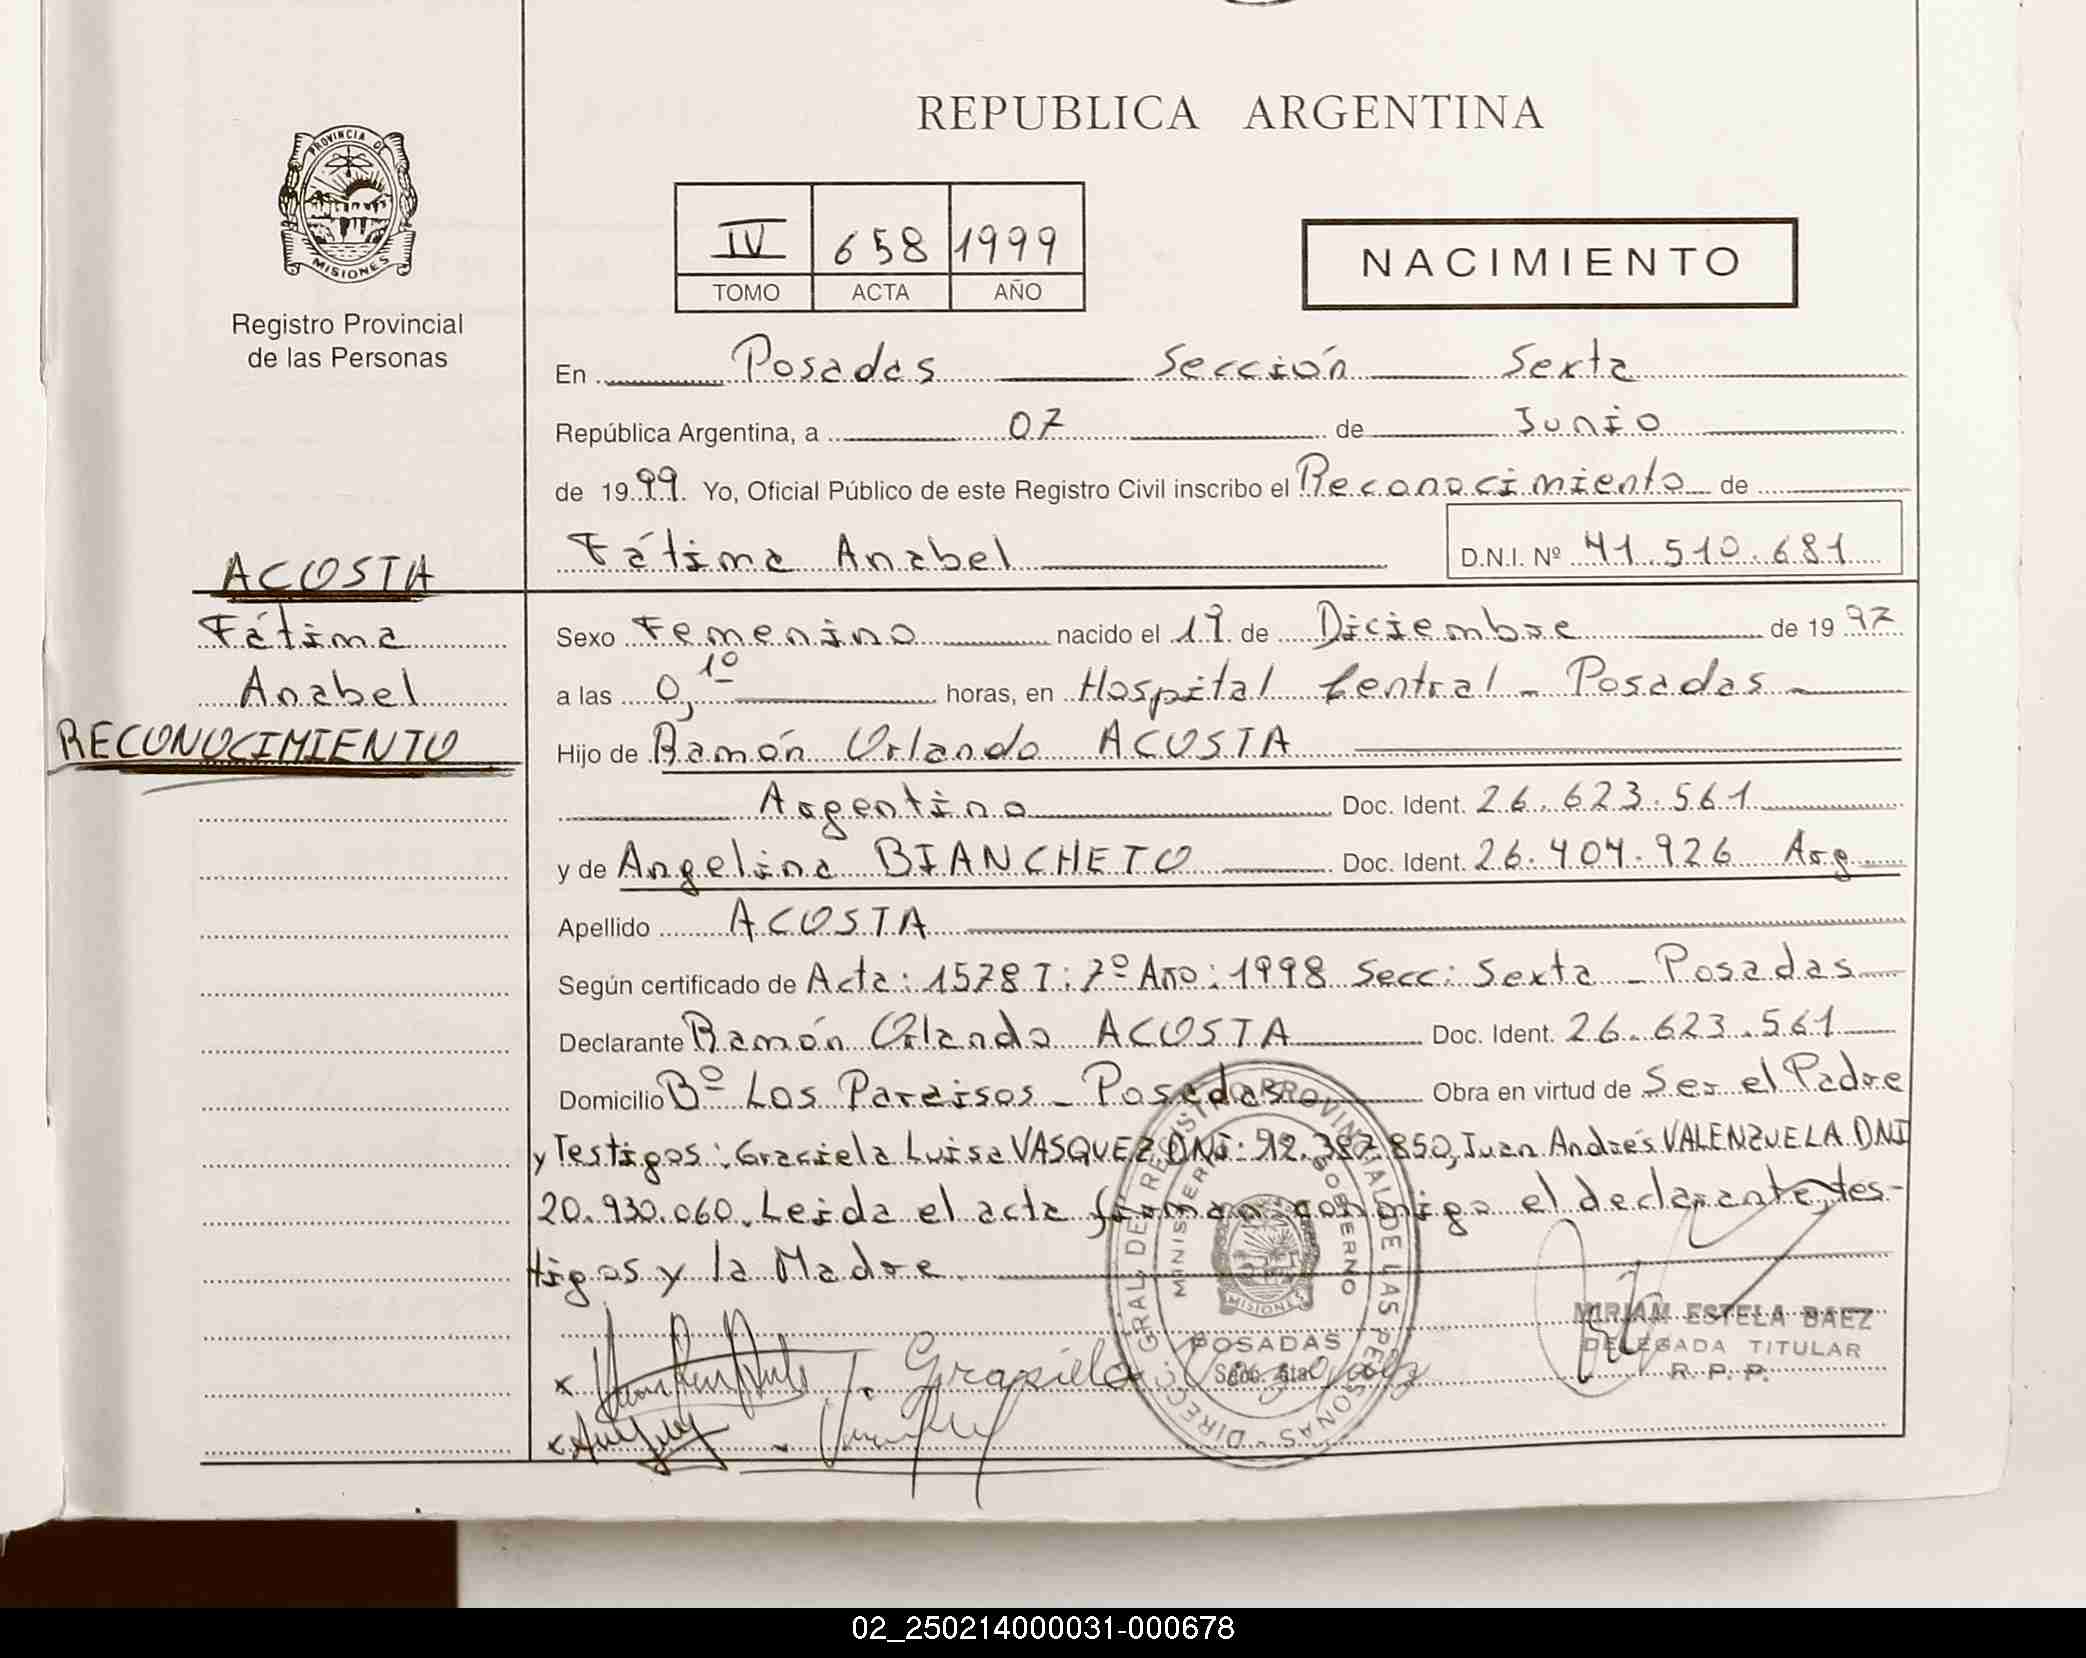 REPUBLICA ARGENTINA
PROVINCIA DE
MISIONES
Registro Provincial
de las Personas
IV 658 1999
TOMO ACTA AÑO
NACIMIENTO
En Posadas Sección Sexta
República Argentina, a 07 de Junio
de 1999. Yo, Oficial Público de este Registro Civil inscribo el Reconocimiento de
Fátima Anabel D.N.I. Nº 41.510.681
ACOSTA
Fátima
Anabel
RECONOCIMIENTO
Sexo Femenino nacido el 19 de Diciembre de 1997
a las 0,10 horas, en Hospital Central - Posadas -
Hijo de Ramón Orlando ACOSTA
Argentino Doc. Ident. 26.623.561
y de Angelina BIANCHETO Doc. Ident. 26.404.926 Arg
Apellido ACOSTA
Según certificado de Acta: 1578 T: 7º Año: 1998 Secc: Sexta - Posadas
Declarante Ramón Orlando ACOSTA Doc. Ident. 26.623.561
Domicilio Bº Los Paraisos - Posadas Obra en virtud de Ser el Padre
y Testigos: Graciela Luisa VASQUEZ DNI: 12.387.850, Juan Andrés VALENZUELA DNI
20.930.060. Leida el acta firman conmigo el declarante, tes-
tigos y la Madre
DIRECC. GRAL. DEL REGISTRO PROVINCIAL DE LAS PERSONAS
MINISTERIO GOBIERNO
MISIONES
POSADAS
Secc. 6ta.
MIRIAM ESTELA BAEZ
DELEGADA TITULAR
R. P. P.
02_250214000031-000678